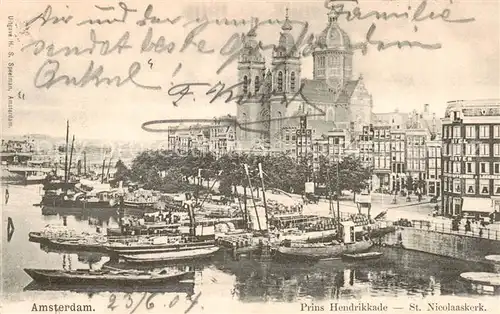 Dir und der ganzen Familie
sendet beste Grüße
Onkel
Uitgave N. S. Speelman, Amsterdam.
Amsterdam. 23/6. 04
Prins Hendrikkade — St. Nicolaaskerk.